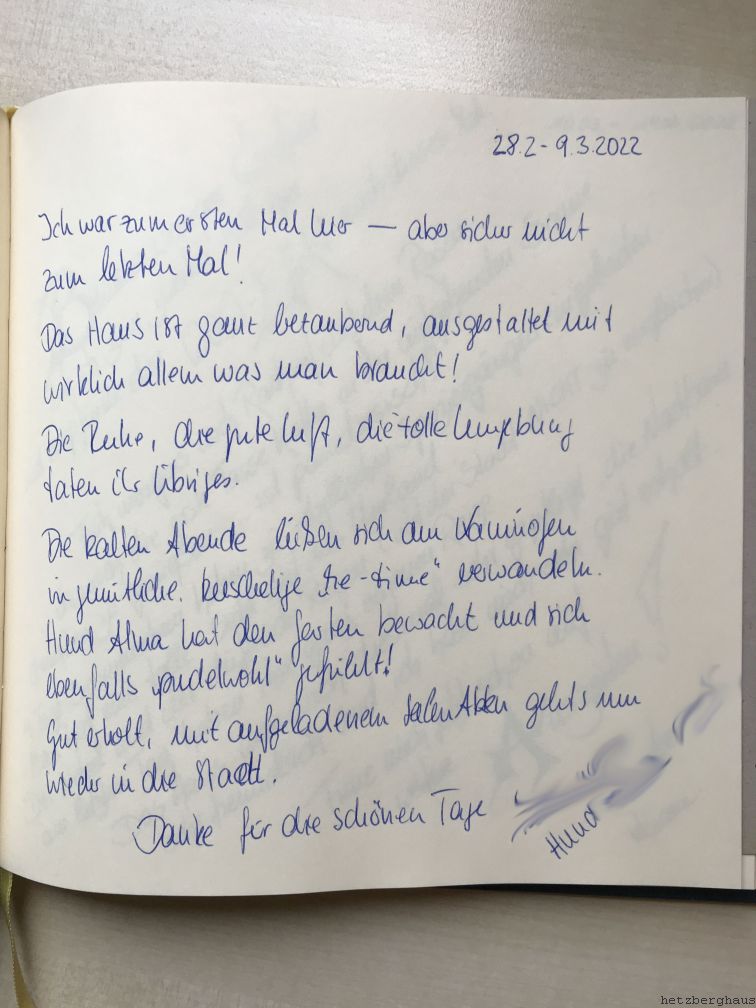 28.2 - 9.3.2022
Ich war zum ersten Mal hier — aber sicher nicht
zum letzten Mal!
Das Haus ist ganz betaubernd, ausgestattet mit
wirklich allem was man braucht!
Die Ruhe, die gute Luft, die tolle Umgebung
taten ihr Übriges.
Die kalten Abende ließen sich am Kaminofen
in gemütliche, kuschelige „me-time“ verwandeln.
Hund Alma hat den Garten bewacht und sich
ebenfalls „pudelwohl“ gefühlt!
Gut erholt, mit aufgeladenem Seelen Akku gehts nun
wieder in die Stadt.
Danke für die schönen Tage
Hund
hetzberghaus